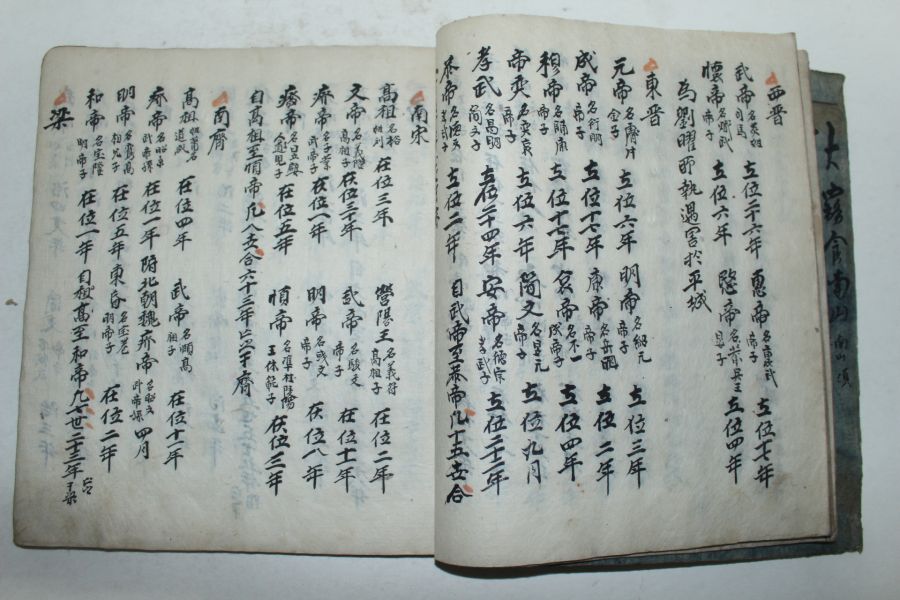 西晋
武帝 名炎 司馬 立位二十六年 惠帝 名衷 武帝子 立位十七年
懷帝 名熾 武帝子 立位六年 愍帝 名業 吳王晏子 立位四年
為劉曜所執遇害於平城
東晋
元帝 立位六年 明帝 名紹 元帝子 立位三年
成帝 名衍 明帝子 立位十七年 康帝 名岳 明帝子 立位二年
穆帝 名聃 康帝子 立位十七年 哀帝 名丕 成帝子 立位四年
帝奕 名奕 哀帝子 立位六年 簡文 名昱 元帝子 立位九月
孝武 名昌明 簡文子 立位二十四年 安帝 名德宗 孝武子 立位二十二年
恭帝 名德文 孝武子 立位二年 自武帝至恭帝凡十五世合
南宋
高祖 名裕 姓刘 在位三年 營陽王 名義符 高祖子 在位二年
文帝 名義隆 高祖子 在位三十年 武帝 名駿 文帝子 在位十一年
廢帝 名子業 武帝子 在位一年 明帝 名彧 文帝子 在位八年
廢帝 名昱 明帝子 在位五年 順帝 名準 桂陽王休範子 在位三年
自高祖至順帝凡八世合六十三年
南齊
高祖 姓蕭 名道成 在位四年 武帝 名賾 高祖子 在位十一年
廢帝 名昭業 武帝孫 在位一年 附北朝魏廢帝 名昭文 武帝孫 四月
明帝 名鸞 高祖兄子 在位五年 東昏 名宝卷 明帝子 在位二年
和帝 名宝隆 明帝子 在位一年 自 高至和帝凡七世二十三年
梁